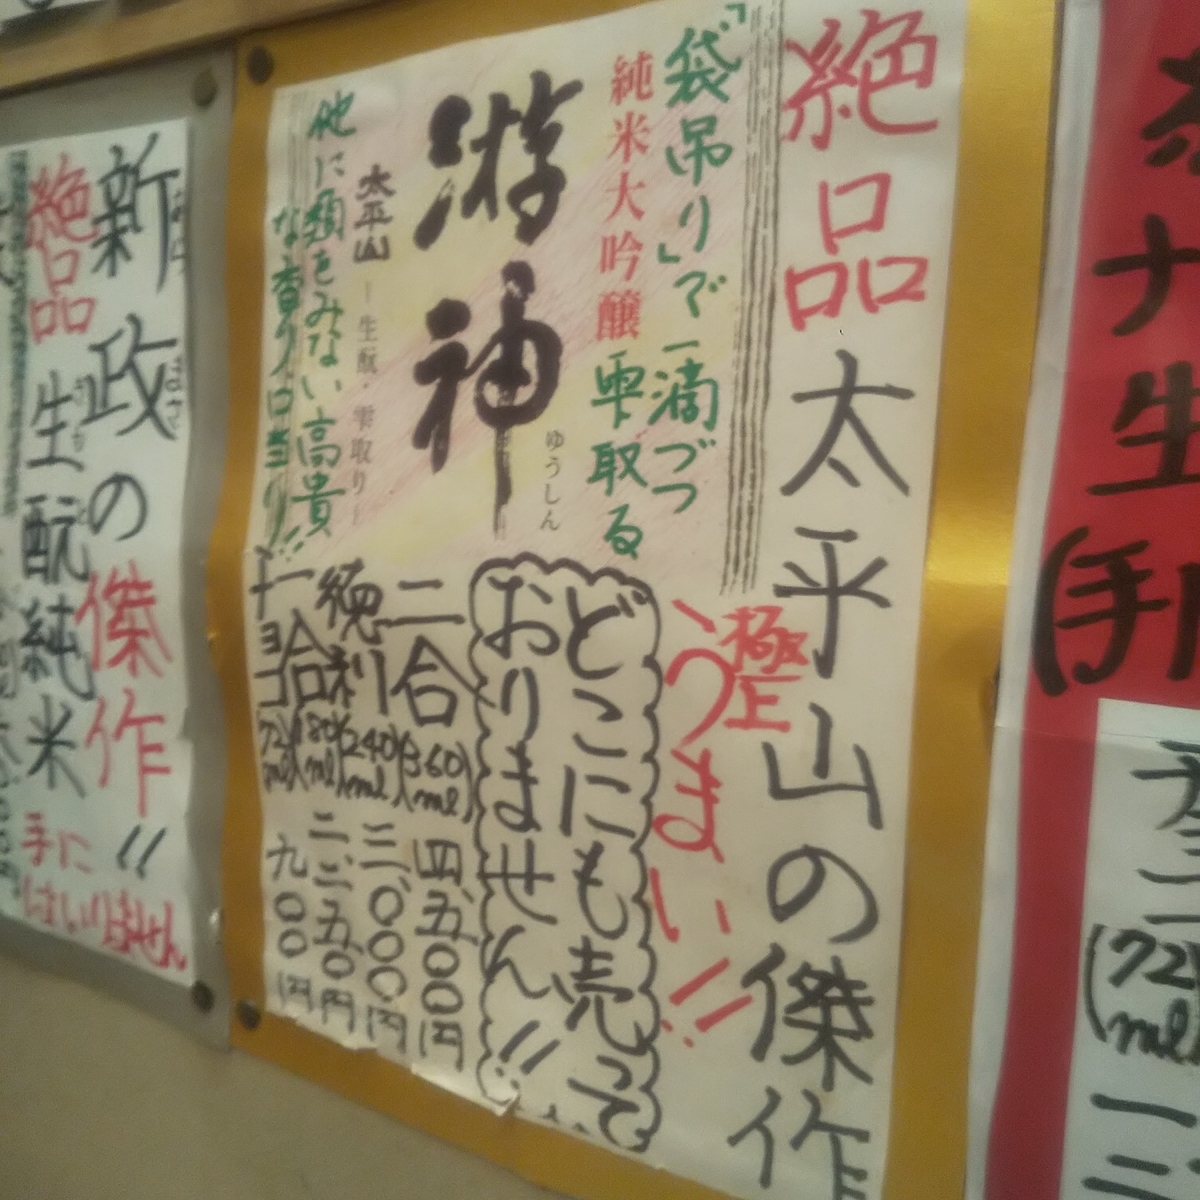 絶品太平山の傑作
極上
うまい!!
「袋吊り」で一滴づつ
純米大吟醸
雫取る
游神
ゆうしん
太平山 ― 生酛・雫取り ―
他に類をみない高貴
な香りノ口当り!!
どこにも売って
おりません!!
二合(360ml)四、五〇〇円
徳利(240ml)三、〇〇〇円
一合(180ml)二、二五〇円
チョコ(72ml)九〇〇円
新政の傑作!!
あら
まさ
絶品
生酛純米
手に
はいりません
ナ
生
(手
(72
ml